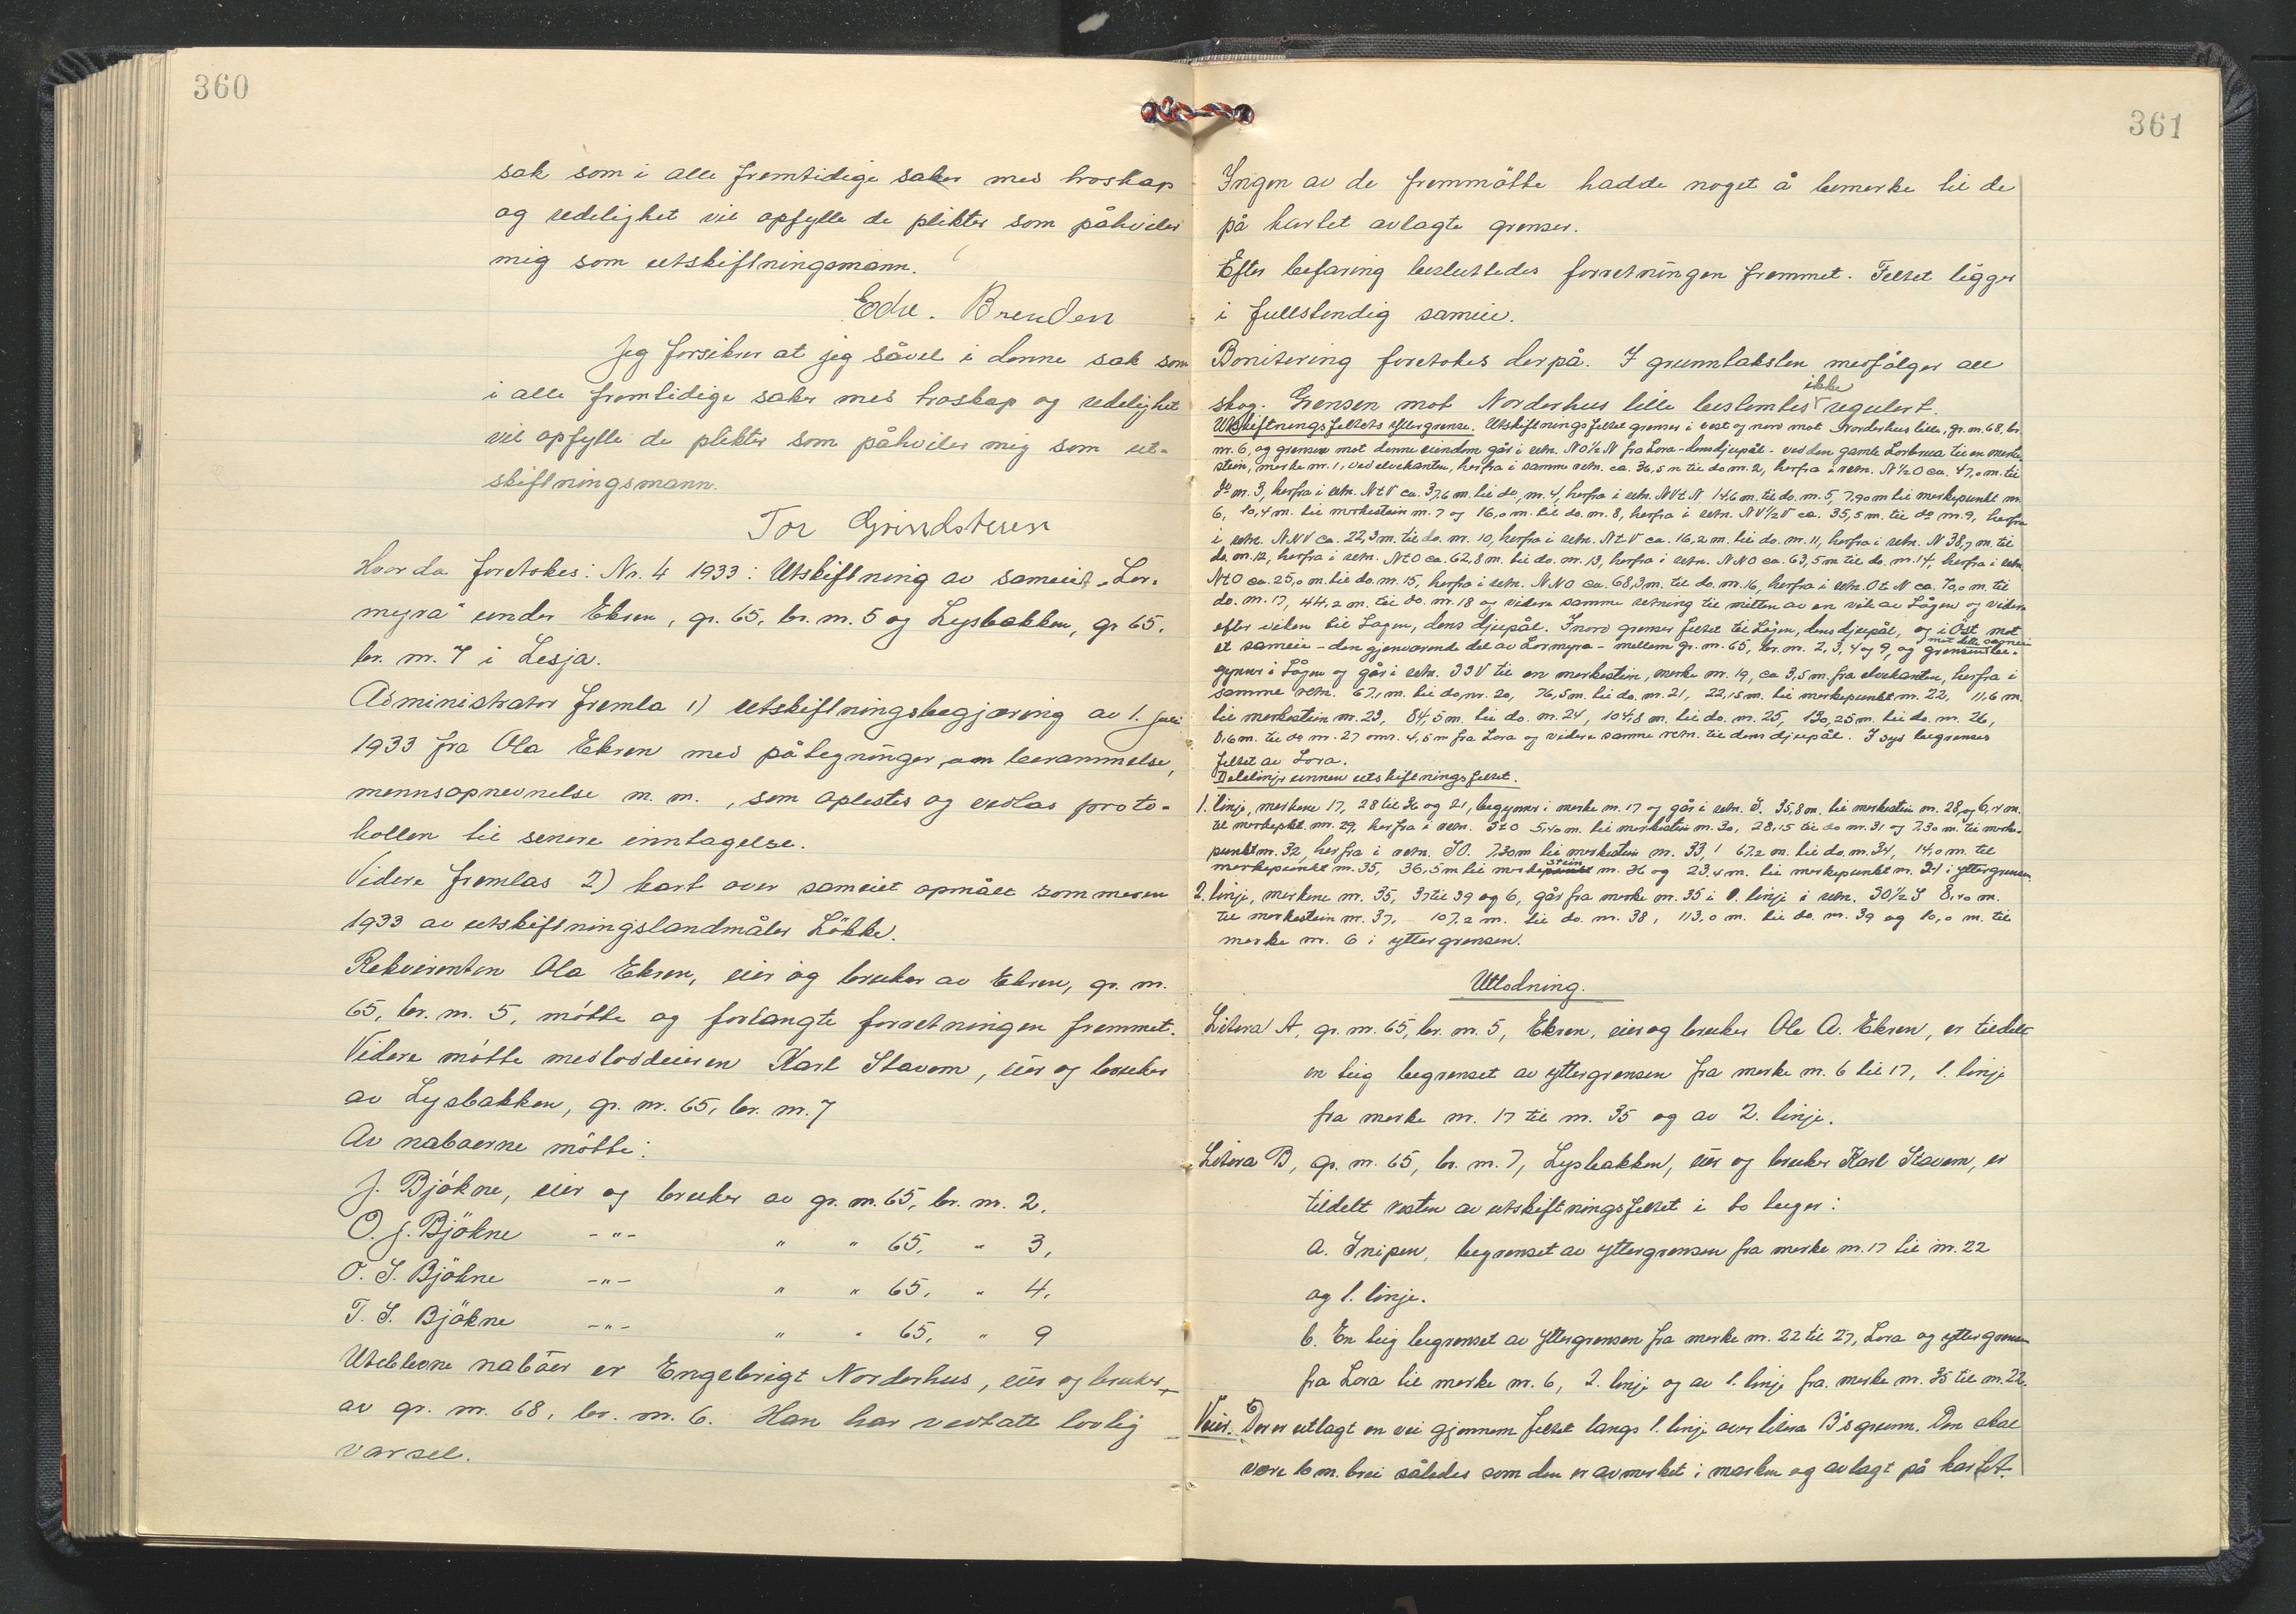 360
sak som i alle fremtidige saker med troskap
og redelighet vil opfylle de plikter som påhviler
mig som utskiftningsmann.
Edv. Brenden
Jeg forsikrer at jeg såvel i denne sak som
i alle fremtidige saker med troskap og redelighet
vil opfylle de plikter som påhviler mig som ut-
skiftningsmann.
Tor Grindstuen
Hvorda foretokes: Nr. 4 1933: Utskiftning av sameiet „Lor-
myra" under Ekren, gr. 65, br. nr. 5 og Lysbakken, gr 65,
br. nr. 7 i Lesja.
Administrator fremla 1) utskiftningsbegjæring av 1. juli
1933 fra Ola Ekren med påtegninger om berammelse,
mennsopnevnelse m. m., som oplestes og vedlas proto-
kollen til senere inntagelse.
Videre fremlas 2) kart over sameiet opmålt sommeren
1933 av utskiftningslandmåler Løkke.
Rekvirenten Ola Ekren, eier og bruker av Ekren, gr. nr.
65, br. nr. 5, møtte og forlangte forretningen fremmet.
Videre møtte medlodeieren Karl Stavem, eier og bruker
av Lysbakken, gr. nr. 65, br. nr. 7
Av naboerne møtte:
J. Bjøkne, eier og bruker av gr. nr. 65, br. nr. 2.
O. J. Bjøkne -"- " " 65, " 3,
O. S. Bjøkne -"- " " 65, " 4,
T. S. Bjøkne -"- " " 65, " 9
Uteblevne naboer er Engebrigt Norderhus, eier og bruker
av gr. nr. 68, br. nr. 6. Han har vedtatt lovlig
varsel.
361
Ingen av de fremmøtte hadde noget å bemerke til de
på kartet avlagte grenser.
Efter befaring besluttedes forretningen fremmet. Feltet ligger
i fullstendig sameie.
Bonitering foretokes derpå. I grunntaksten medfølger all
skog. Grensen mot Norderhus lille bestemtes ikke regulert.
Utskiftningsfeltets yttergrense. Utskiftningsfeltet grenser i vest og nord mot Norderhus lille, gr. nr. 68, br.
nr. 6, og grensen mot denne eiendom går i retn. NO½N fra Lora - dens djupål - ved den gamle Lorbrua til en merke-
stein, merke nr. 1, ved elvekanten, herfra i samme retn. ca. 36,5 m til do nr. 2, herfra i retn. N½O ca. 47,0 m. til
do nr. 3, herfra i retn. NtV ca. 37,6 m. til do, nr. 4, herfra i retn. NVtN 14,6 m. til do. nr. 5, 7,90 m til merkepunkt nr.
6, 10,4 m. til merkestein nr. 7 og 16,0 m. til do. nr. 8, herfra i retn. NV½V ca. 35,5 m. til do nr. 9, herfra
i retn. NNV ca. 22,3 m. til do. nr. 10, herfra i retn. NtV ca. 16,2 m. til do. nr. 11, herfra i retn. N 38,7 m. til
do. nr. 12, herfra i retn. NtO ca. 62,8 m. til do. nr. 13, herfra i retn. NNO ca. 63,5 m til do. nr. 14, herfra i retn
NtO ca. 25,0 m. til do. nr. 15, herfra i retn. NNO ca. 68,3 m. til do. nr. 16, herfra i retn. OtN ca. 70,0 m. til
do. nr. 17, 44,2 m. til do. nr. 18 og videre samme retning til midten av en vik av Lågen og videre
efter viken til Lågen, dens djupål. I nord grenser feltet til Lågen, dens djupål, og i Øst mot
et sameie - den gjenværende del av Lormyra - mellem gr. nr. 65, br. nr. 2, 3, 4 og 9, og grensen mot dette sameie be-
gynner i Lågen og går i retn. SSV til en merkestein, merke nr. 19, ca 3,5 m. fra elvekanten, herfra i
samme retn. 67,1 m. til do, nr. 20, 76,5 m. til do. nr. 21, 22,15 m. til merkepunkt nr. 22, 11,6 m.
til merkestein nr. 23, 84,5 m. til do. nr. 24, 104,8 m. til do. nr. 25, 130,25 m. til do. nr. 26,
til do nr. 27 omr. 4,5 m fra Lora og videre samme retn. til dens djupål. I syd begrenses
feltet av Lora.
Delelinje innen utskiftningsfeltet.
1. linje, merkene 17, 28 til 36 og 21, begynner i merke nr. 17 og går i retn. S. 35,8 m. til merkestein nr. 28, og 6,4 m.
til merkepkt. nr. 29, herfra i retn. StO 5,40 m. til merkestein nr. 30, 28,15 til do nr. 31 og 7,30 m. til merke-
punkt nr. 32, herfra i retn. SO. 7,30 m til merkestein nr. 33, 67,2 m. til do. nr. 34, 14,0 m. til
merkepunkt nr. 35, 36,5 m til merkestein nr. 36 og 23,4 m. til merkepunkt nr. 21 i yttergrensen.
2. linje, merkene nr. 35, 37 til 39 og 6, går fra merke nr. 35 i 1. linje i retn. SO½S 8,40 m.
til merkestein nr. 37, 107,2 m. til do. nr. 38, 113,0 m. til do. nr. 39 og 10,0 m. til
merke nr. 6 i yttergrensen.
Utlodning.
Litera A, gr. nr. 65, br. nr. 5, Ekren, eier og bruker Ole A. Ekren, er tildelt
en teig begrenset av yttergrensen fra merke nr. 6 til 17, 1. linje
fra merke nr. 17 til nr. 35 og av 2. linje.
Litera B, gr. nr. 65, br. nr. 7, Lysbakken, eier og bruker Karl Stavem, er
tildelt resten av utskiftningsfeltet i to teiger:
a. Snipen, begrenset av yttergrensen fra merke nr. 17 til nr. 22
og 1. linje.
b. En teig begrenset av yttergrensen fra merke nr. 22 til 27, Lora og yttergrensen
fra Lora til merke nr. 6, 2. linje og av 1. linje fra merke nr. 35 til nr. 22.
Veier. Der er utlagt en vei gjennem feltet langs 1. linje over litera B's grunn. Den skal
være 6 m. brei således som den er avmerket i marken og avlagt på kartet.